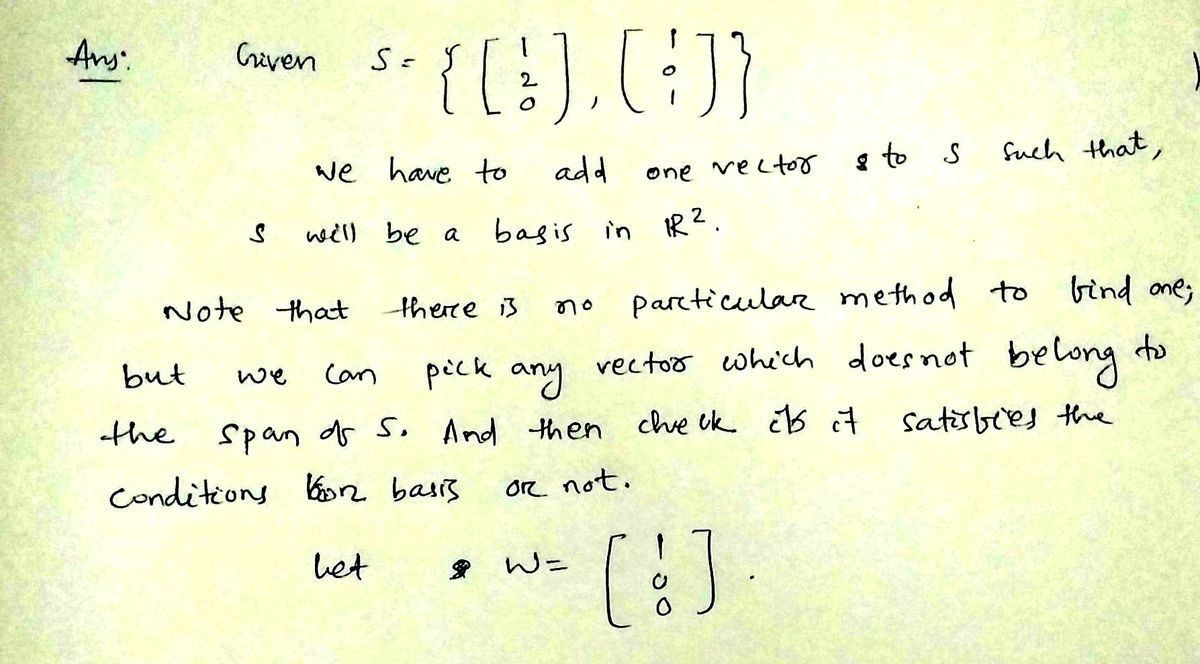 Ans: Given S = { [1 2 0], [1 0 1] }
We have to add one vector to S such that,
S will be a basis in IR².
Note that there is no particular method to find one;
but we can pick any vector which does not belong to
the span of S. And then check if it satisfies the
conditions for basis or not.
Let W = [1 0 0].